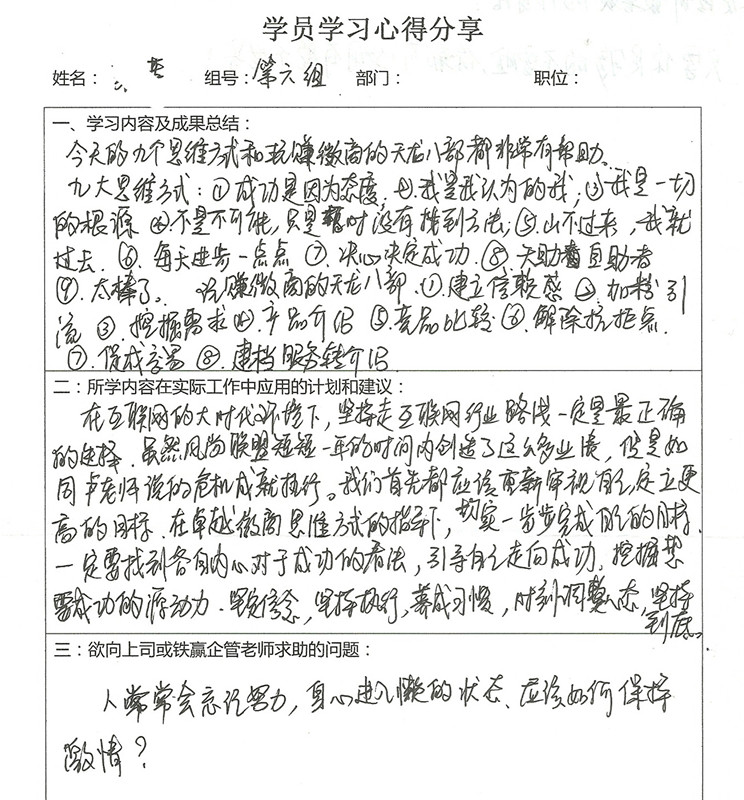 学员学习心得分享
姓名： 组号：第六组 部门： 职位：
一、学习内容及成果总结：
今天的九个思维方式和玩赚微商的天龙八部都非常有帮助。
九大思维方式：①成功是因为态度，②.我是我认为的我；③我是一切
的根源 ④.不是不可能，只是暂时没有找到方法；⑤.山不过来，我就
过去. ⑥. 每天进步一点点 ⑦. 决心决定成功. ⑧ 天助自助者
⑨. 太棒了。 玩赚微商的天龙八部.①.建立信赖感 ②.加粉引
流 ③ 挖掘需求 ④.产品介绍 ⑤.竞品比较 ⑥.解除抗拒点.
⑦.促成交易 ⑧.建档服务转介绍
二：所学内容在实际工作中应用的计划和建议：
在互联网的大时代环境下，坚持走互联网行业路线一定是最正确
的选择. 虽然风尚联盟短短一年的时间内创造了这么多业绩，但是如
同卢老师说的危机成就执行。我们首先都应该重新审视自己，定立更
高的目标. 在卓越微商思维方式的指导下，切实一步步完成自己的目标.
一定要找到各自内心对于成功的看法，引导自己走向成功. 挖掘想
要成功的源动力. 坚定信念，坚持执行，养成习惯，时刻调整心态，坚持
到底。
三：欲向上司或铁赢企管老师求助的问题：
人常常会忘记努力，身心进入懒的状态、应该如何保持
激情？